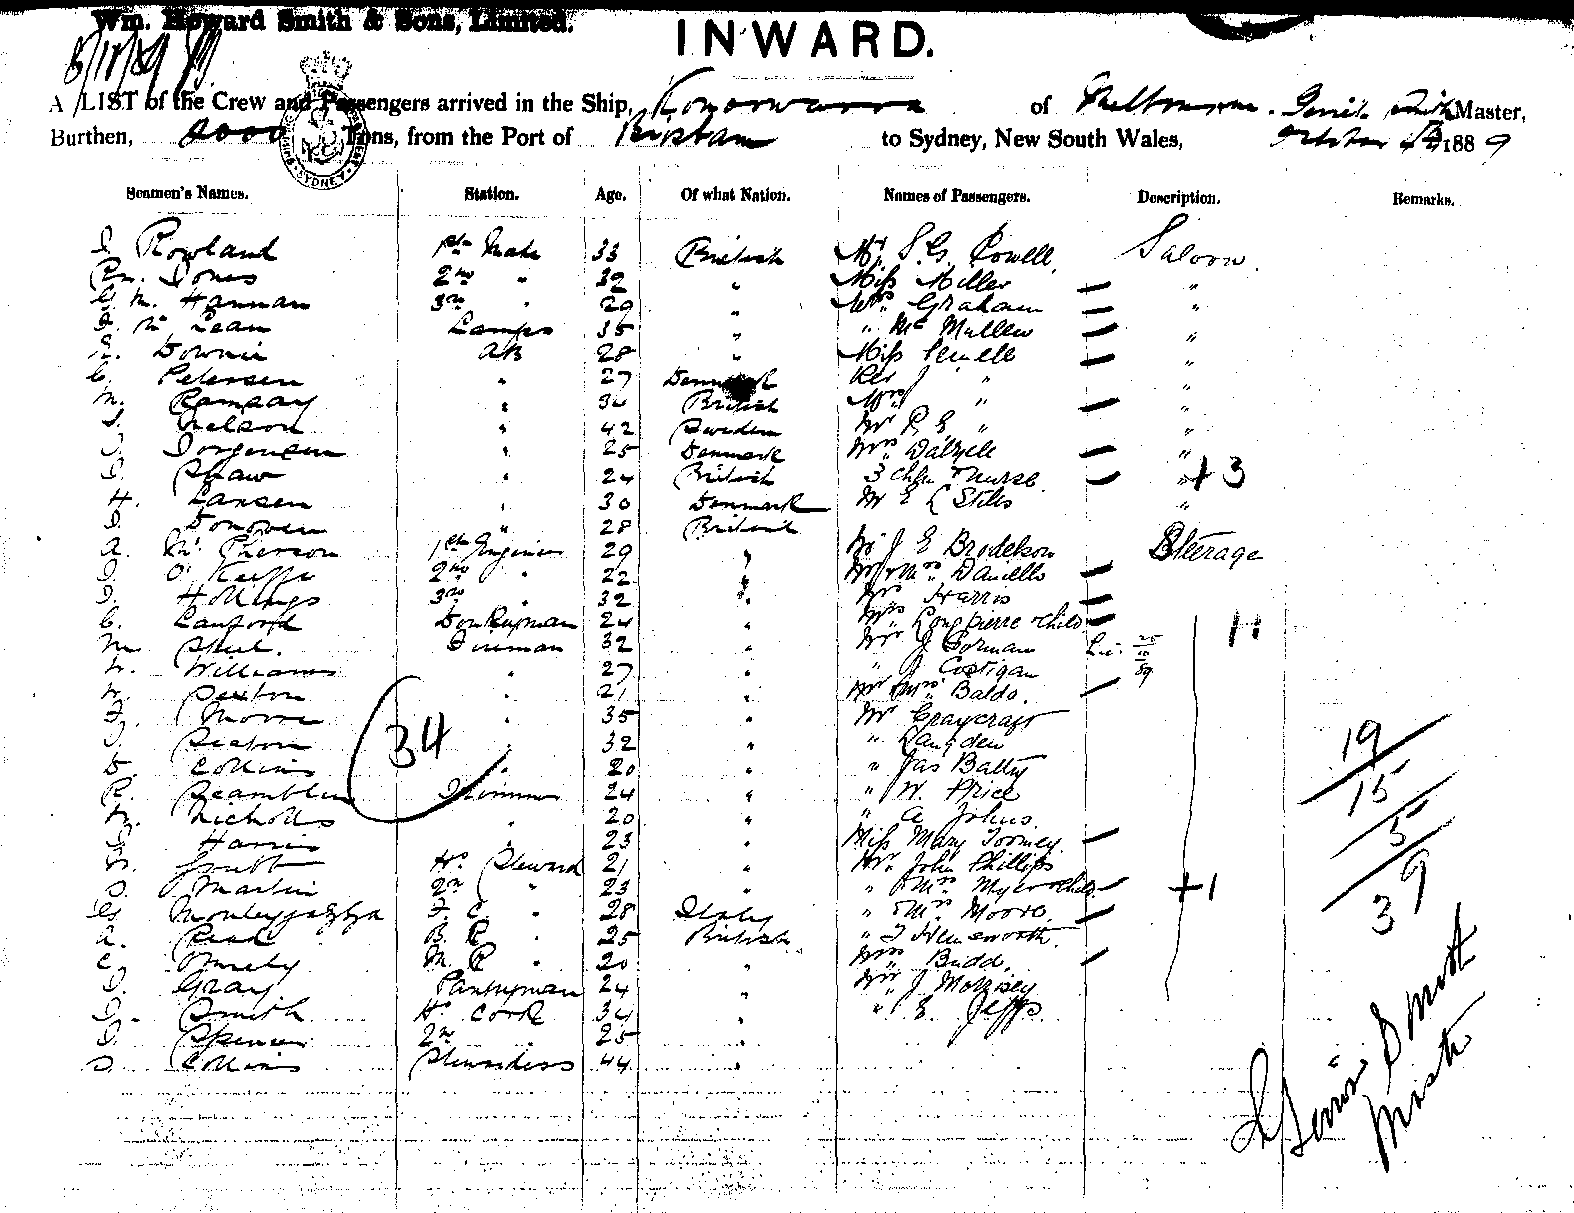 Wm. Howard Smith & Sons, Limited.
INWARD.
A LIST of the Crew and Passengers arrived in the Ship, Konoowarra of Melbourne. Smith Master,
Burthen, 2000 Tons, from the Port of Brisbane to Sydney, New South Wales, October 1889
SYDNEY
Seamen's Names. Station. Age. Of what Nation. Names of Passengers. Description. Remarks.
J Rowland 1st Mate 33 British Mr S. G. Powell Saloon
Jones 2nd " 32 " Miss Miller "
G. M. Hannan 3rd " 29 " Mrs Graham "
Mc Lean Lamps 35 " " Mc Mullen "
Downie AB 28 " Miss Sewell "
C. Petersen " 27 Denmark Rev J " "
M. Ramsay " 34 British Mrs " "
Nelson " 42 Sweden Mr P. E " "
J. Jorgensen " 25 Denmark Mrs Dalzell "
J. Shaw " 24 British 3 chn & nurse " + 3
H. Larsen " 30 Denmark Mr E L Stills "
J. Donovan " 28 British
A. McPherson 1st Engineer 29 " Mr J E Brodelson Steerage
J. O'Keiffe 2nd " 22 " Mr & Mrs Daniells
J. Hollings 3rd " 32 " Mr Harris
C. Lanford Donkeyman 24 " Mrs Longpierre & child
M Shiel. Fireman 32 " Mr J Gorman
Williams " 27 " " J Costigan
Sexton " 21 " Mr & Mrs Baldo.
Moore " 35 " Mr Craycraft
Seaton " 32 " " Langden
Collins " 20 " " Jas Batty
Scamblin Trimmer 24 " " W. Price
Nicholls " 20 " " A Johns
Harris " 23 " Miss Mary Toomey
Hd. Steward 21 " Mr. John Phillips
Martin 2nd " 23 " " & Mrs Myer & child + 1
F. C. " 28 Italy " & Mrs Moore
A. Read B. R " 25 British " T Hemsworth.
C. M. R " 20 " Mrs Budd.
J. Gray Pantryman 24 " Mr J Morrisey
J. Smith Hd Cook 34 " " E. Jeffs.
J. Spencer 2nd " 25 "
S. Collins Stewardess 44 "
34
19
15
5
39
Smith
Master